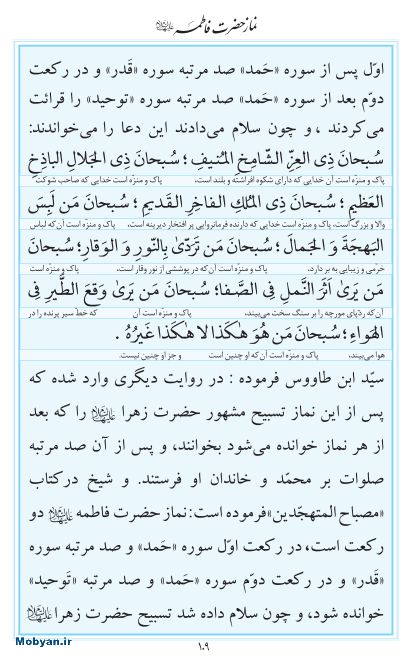 نماز حضرت فاطمه علیهاالسلام
اوّل پس از سوره «حَمد» صد مرتبه سوره «قَدر» و در رکعت
دوّم بعد از سوره «حَمد» صد مرتبه سوره «توحید» را قرائت
می‌کردند ، و چون سلام می‌دادند این دعا را می‌خواندند:
سُبحانَ ذِی العِزِّ الشّامِخِ المُنیفِ ؛ سُبحانَ ذِی الجَلالِ الباذِخِ
پاک و منزّه است آن خدایی که دارای شکوه افراشته و بلند است، پاک و منزّه است خدایی که صاحب شوکت
العَظیمِ ؛ سُبحانَ ذِی المُلكِ الفاخِرِ القَدیمِ ؛ سُبحانَ مَن لَبِسَ
والا و بزرگ است، پاک و منزّه است خدایی که دارنده فرمانروایی پر افتخار دیرینه است، پاک و منزّه است آن‌که لباس
البَهجَةَ وَ الجَمالَ ؛ سُبحانَ مَن تَرَدّیٰ بِالنّورِ وَ الوَقارِ ؛ سُبحانَ
خرمی و زیبایی به بر دارد، پاک و منزّه است آن‌که در پوششی از نور وقار است، پاک و منزّه است
مَن یَریٰ اَثَرَ النَّملِ فِی الصَّفا؛ سُبحانَ مَن یَریٰ وَقعَ الطَّیرِ فِی
آن‌که ردّپای مورچه را بر سنگ سخت می‌بیند، پاک و منزّه است آن که خط سیر پرنده را در
الهَواءِ ؛ سُبحانَ مَن هُوَ هٰکَذا لا هٰکَذا غَیرُهُ .
هوا می‌بیند، پاک و منزّه است آن‌که او چنین است و جز او چنین نیست.
سیّد ابن طاووس فرموده : در روایت دیگری وارد شده که
پس از این نماز تسبیح مشهور حضرت زهرا علیهاالسلام را که بعد
از هر نماز خوانده می‌شود بخوانند، و پس از آن صد مرتبه
صلوات بر محمّد و خاندان او فرستند. و شیخ درکتاب
«مصباح المتهجّدین»فرموده است: نماز حضرت فاطمه علیهاالسلام دو
رکعت است، در رکعت اوّل سوره «حَمد» و صد مرتبه سوره
«قَدر» و در رکعت دوّم سوره «حَمد» و صد مرتبه «تَوحید»
خوانده شود، و چون سلام داده شد تسبیح حضرت زهرا علیهاالسلام
۱۰۹
Mobyan.ir